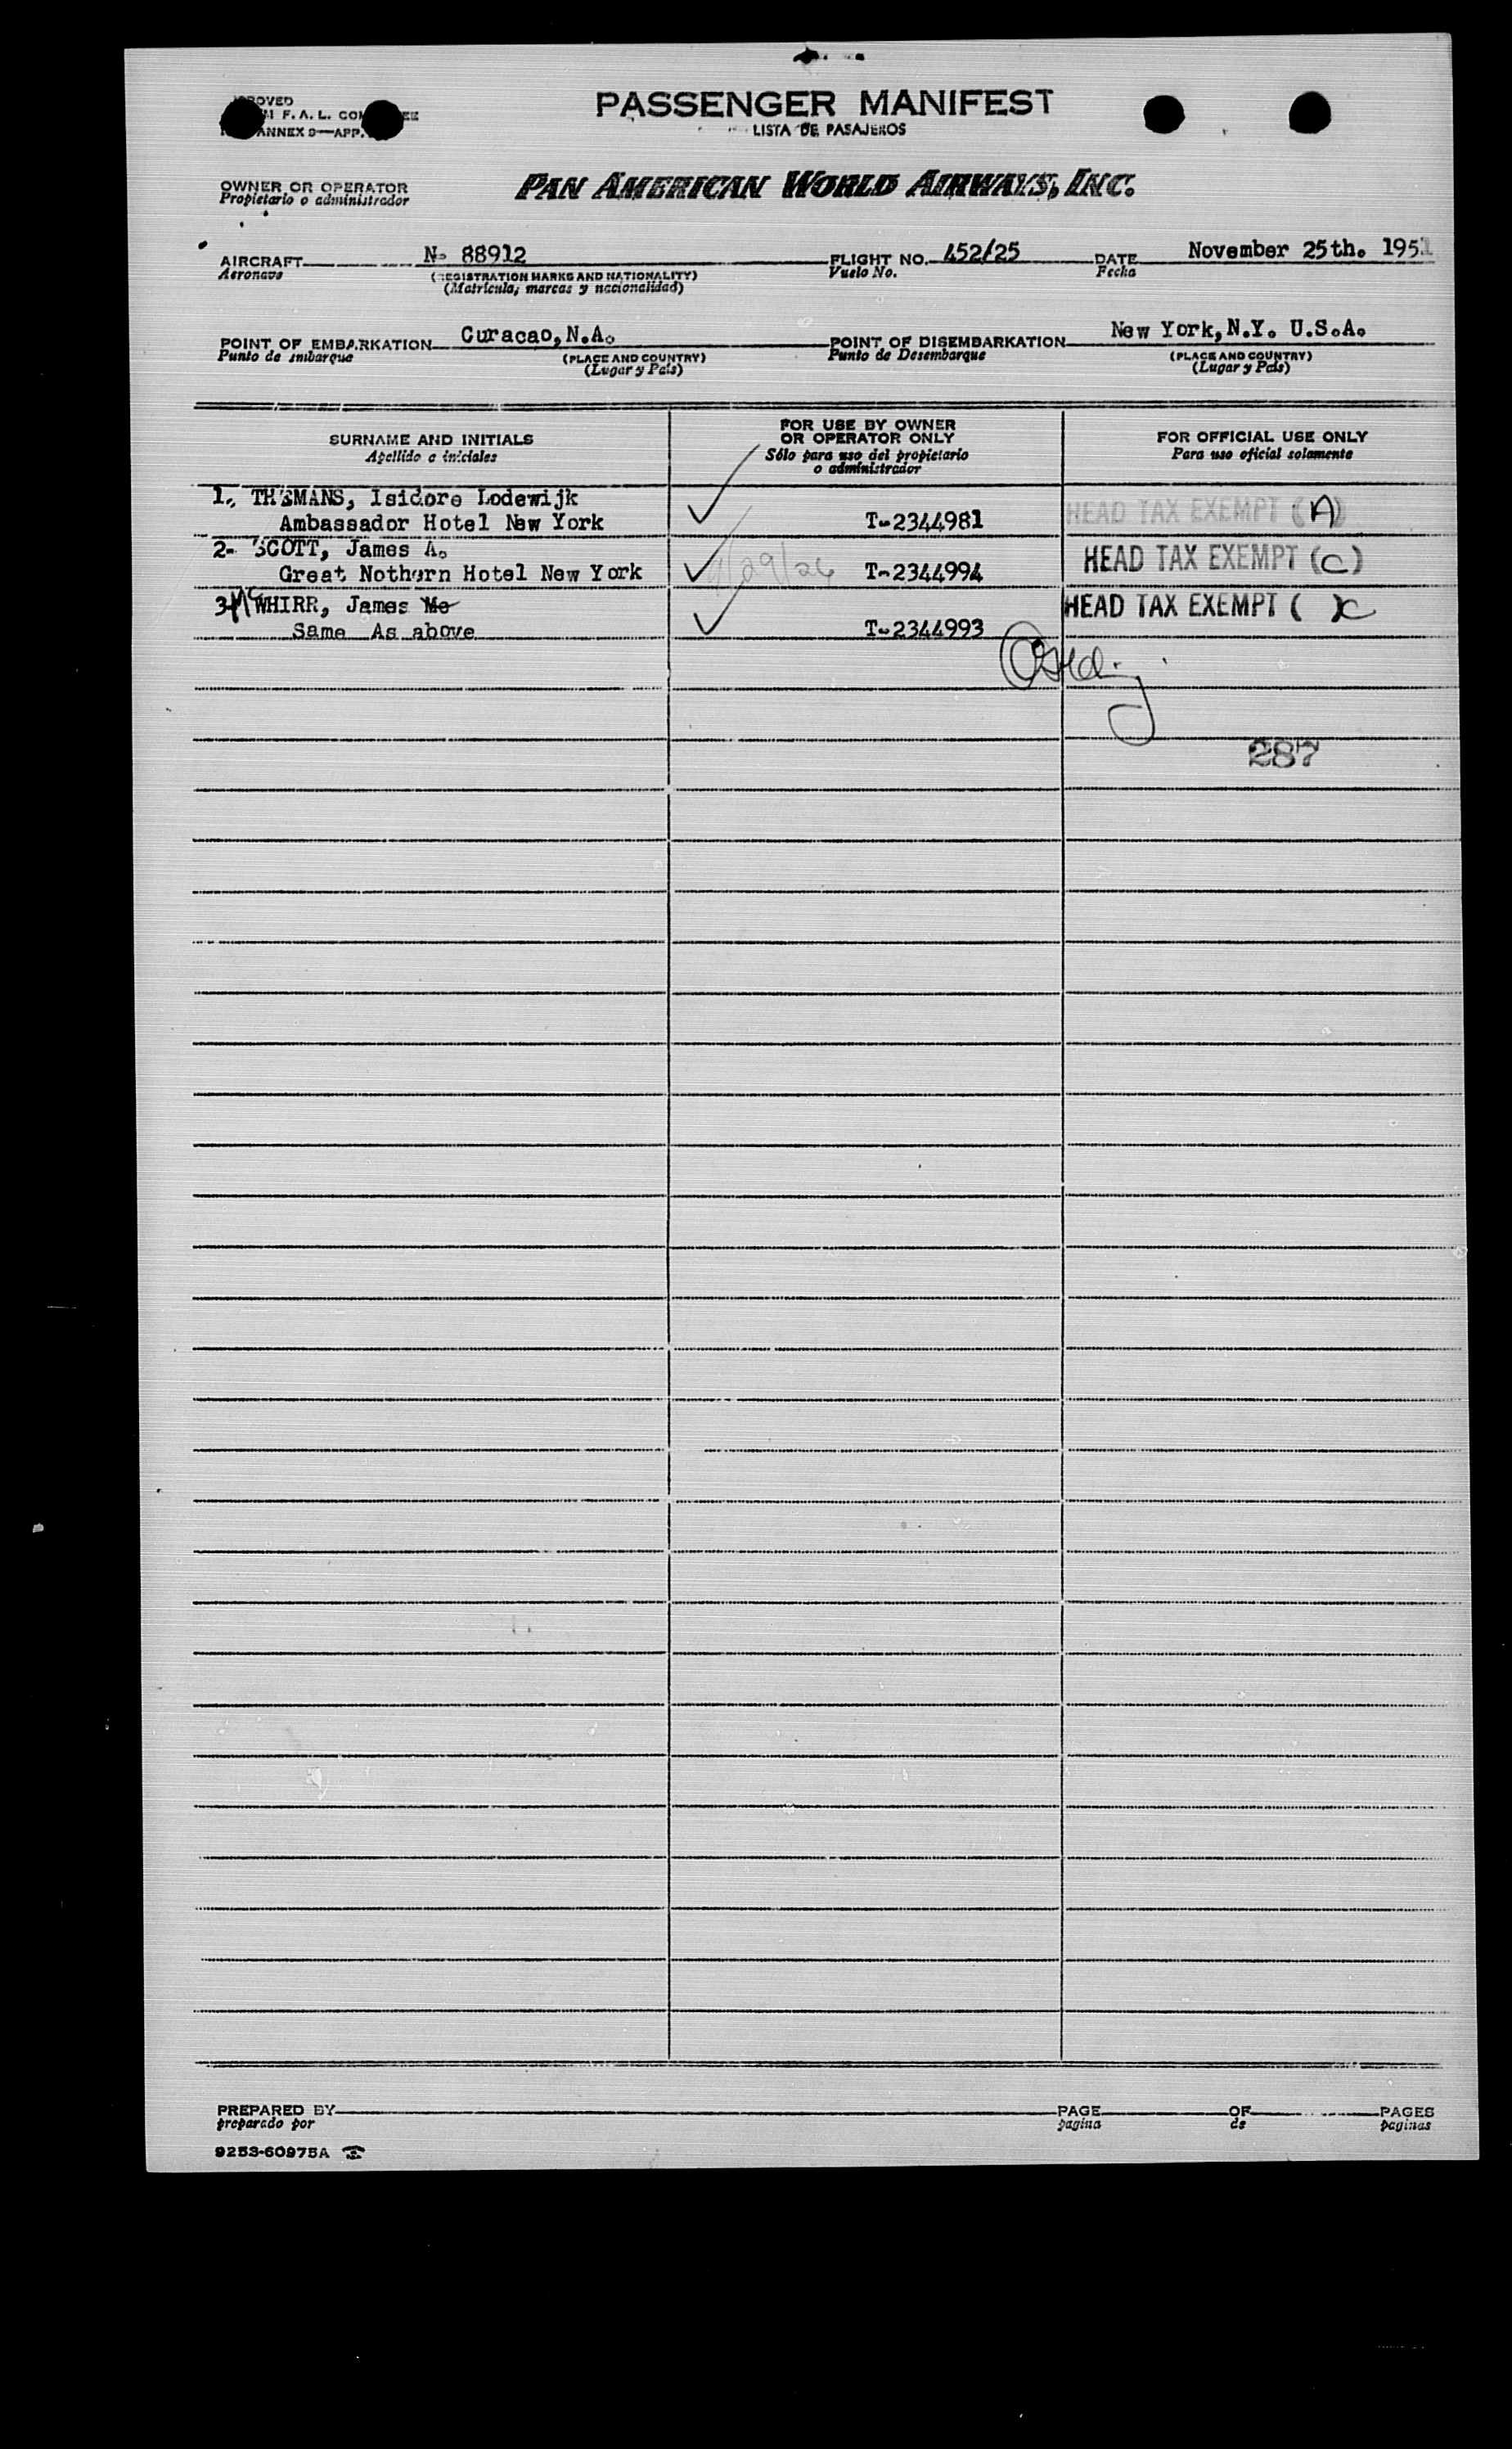 F. A. L.
ANNEX 9—APP.
PASSENGER MANIFEST
LISTA DE PASAJEROS
OWNER OR OPERATOR
Propietario o administrador
PAN AMERICAN WORLD AIRWAYS, INC.
AIRCRAFT N- 88912 FLIGHT NO. 452/25 DATE November 25th. 1951
Aeronave (REGISTRATION MARKS AND NATIONALITY) Vuelo No. Fecha
(Matrícula, marcas y nacionalidad)
POINT OF EMBARKATION Curacao,N.A. POINT OF DISEMBARKATION New York,N.Y. U.S.A.
Punto de embarque (PLACE AND COUNTRY) Punto de Desembarque (PLACE AND COUNTRY)
(Lugar y País) (Lugar y País)
SURNAME AND INITIALS FOR USE BY OWNER OR OPERATOR ONLY FOR OFFICIAL USE ONLY
Apellido e iniciales Sólo para uso del propietario o administrador Para uso oficial solamente
1., Isidore Lodewijk
Ambassador Hotel New York T-2344981 HEAD TAX EXEMPT (A)
2- SCOTT, James A.
Great Nothern Hotel New York T-2344994 HEAD TAX EXEMPT (C)
3- Mc WHIRR, James Mc HEAD TAX EXEMPT ( )C
Same As above T-2344993
287
PREPARED BY PAGE OF PAGES
preparado por pagina de paginas
9253-60975A